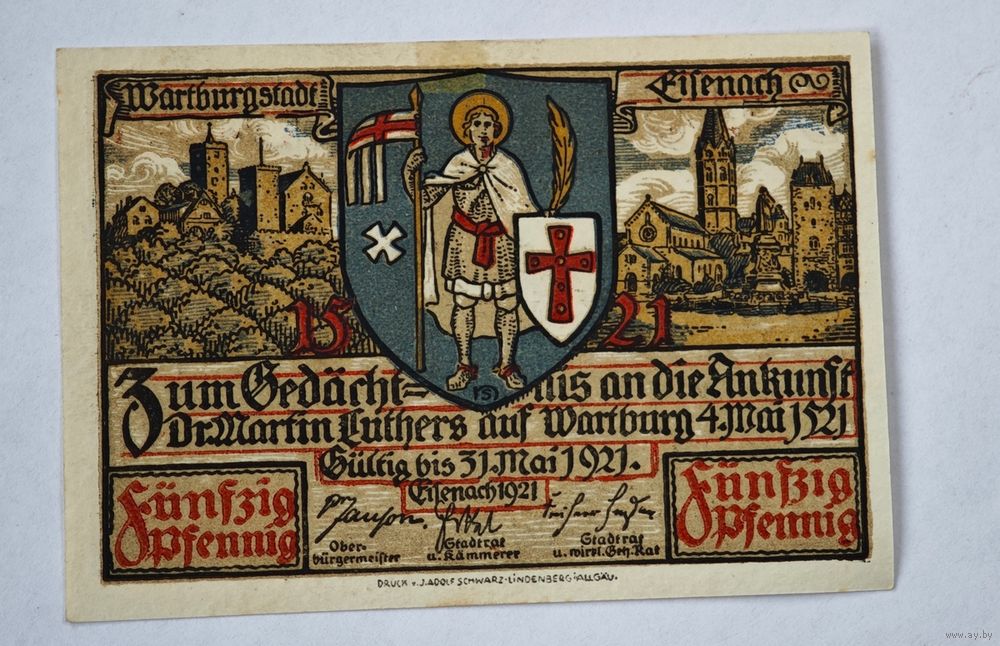 Wartburgstadt
Eisenach
15 21
Zum Gedächt=nis an die Ankunft
Dr. Martin Luthers auf Wartburg 4. Mai 1521
Gültig bis 31. Mai 1921.
Eisenach 1921
Fünfzig
Pfennig
Ober-
bürgermeister
Stadtrat
u. Kämmerer
Stadtrat
u. wirkl. Geh. Rat
Fünfzig
Pfennig
DRUCK v. J. ADOLF SCHWARZ-LINDENBERG i/ALLGÄU.
www.ay.by